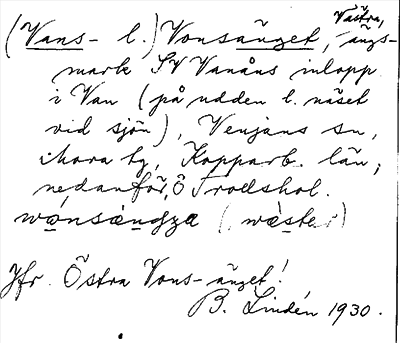 (Vans- l.) Vonsänget, Västra, ängs-
mark SV Vanåns inlopp
i Van (på udden l. näset
vid sjön), Venjans sn,
Mora tg, Kopparb. län;
nedanför, Ö Troedshol.
wònsæŋǥa (wæster)
Jfr. Östra Vons-änget!
B. Lindén 1930.